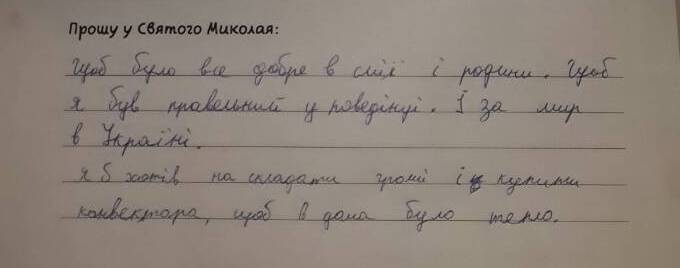 Прошу у Святого Миколая:
Щоб було все добре в сім'ї і родини. Щоб
я був правельний у поведінці. І за мир
в Україні.
Я б хотів на складати гроші і купити
конвектора, щоб в дома було тепло.